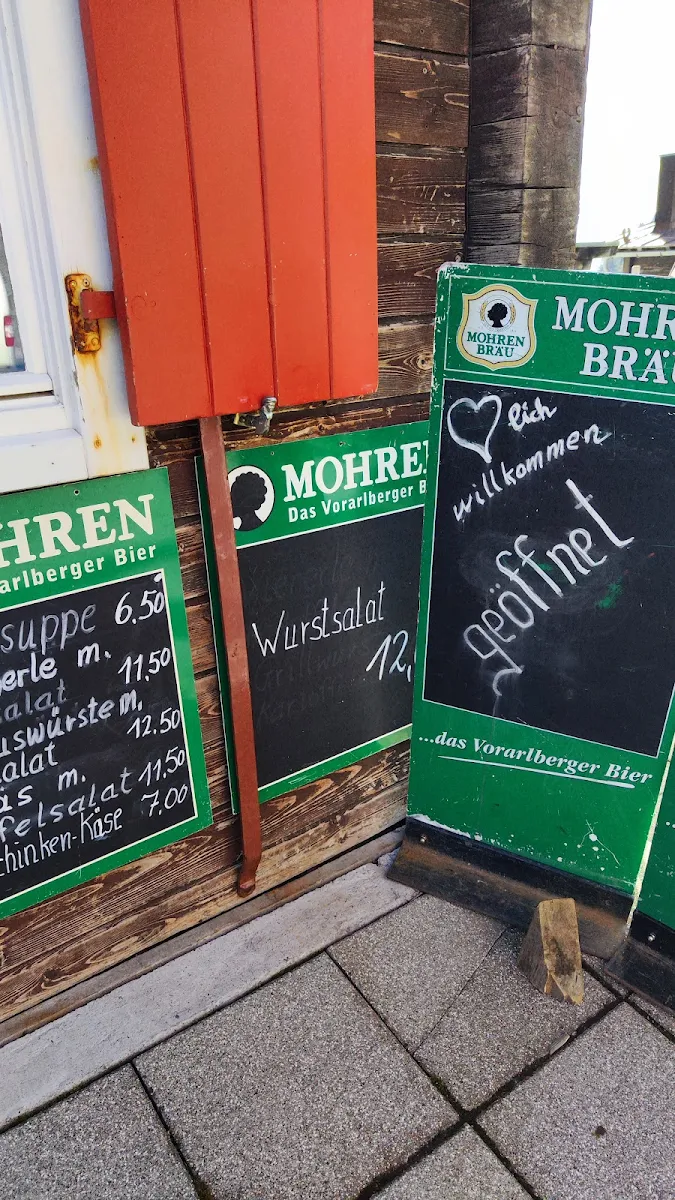 HREN
arlberger Bier
suppe 6.50
erle m.
salat 11.50
uswürste m.
alat 12.50
äs m.
felsalat 11.50
chinken-Käse 7.00
MOHRE
Das Vorarlberger B
Wurstsalat
12,
MOHREN
BRÄU
MOHR
BRÄU
lich
willkommen
geöffnet
...das Vorarlberger Bier